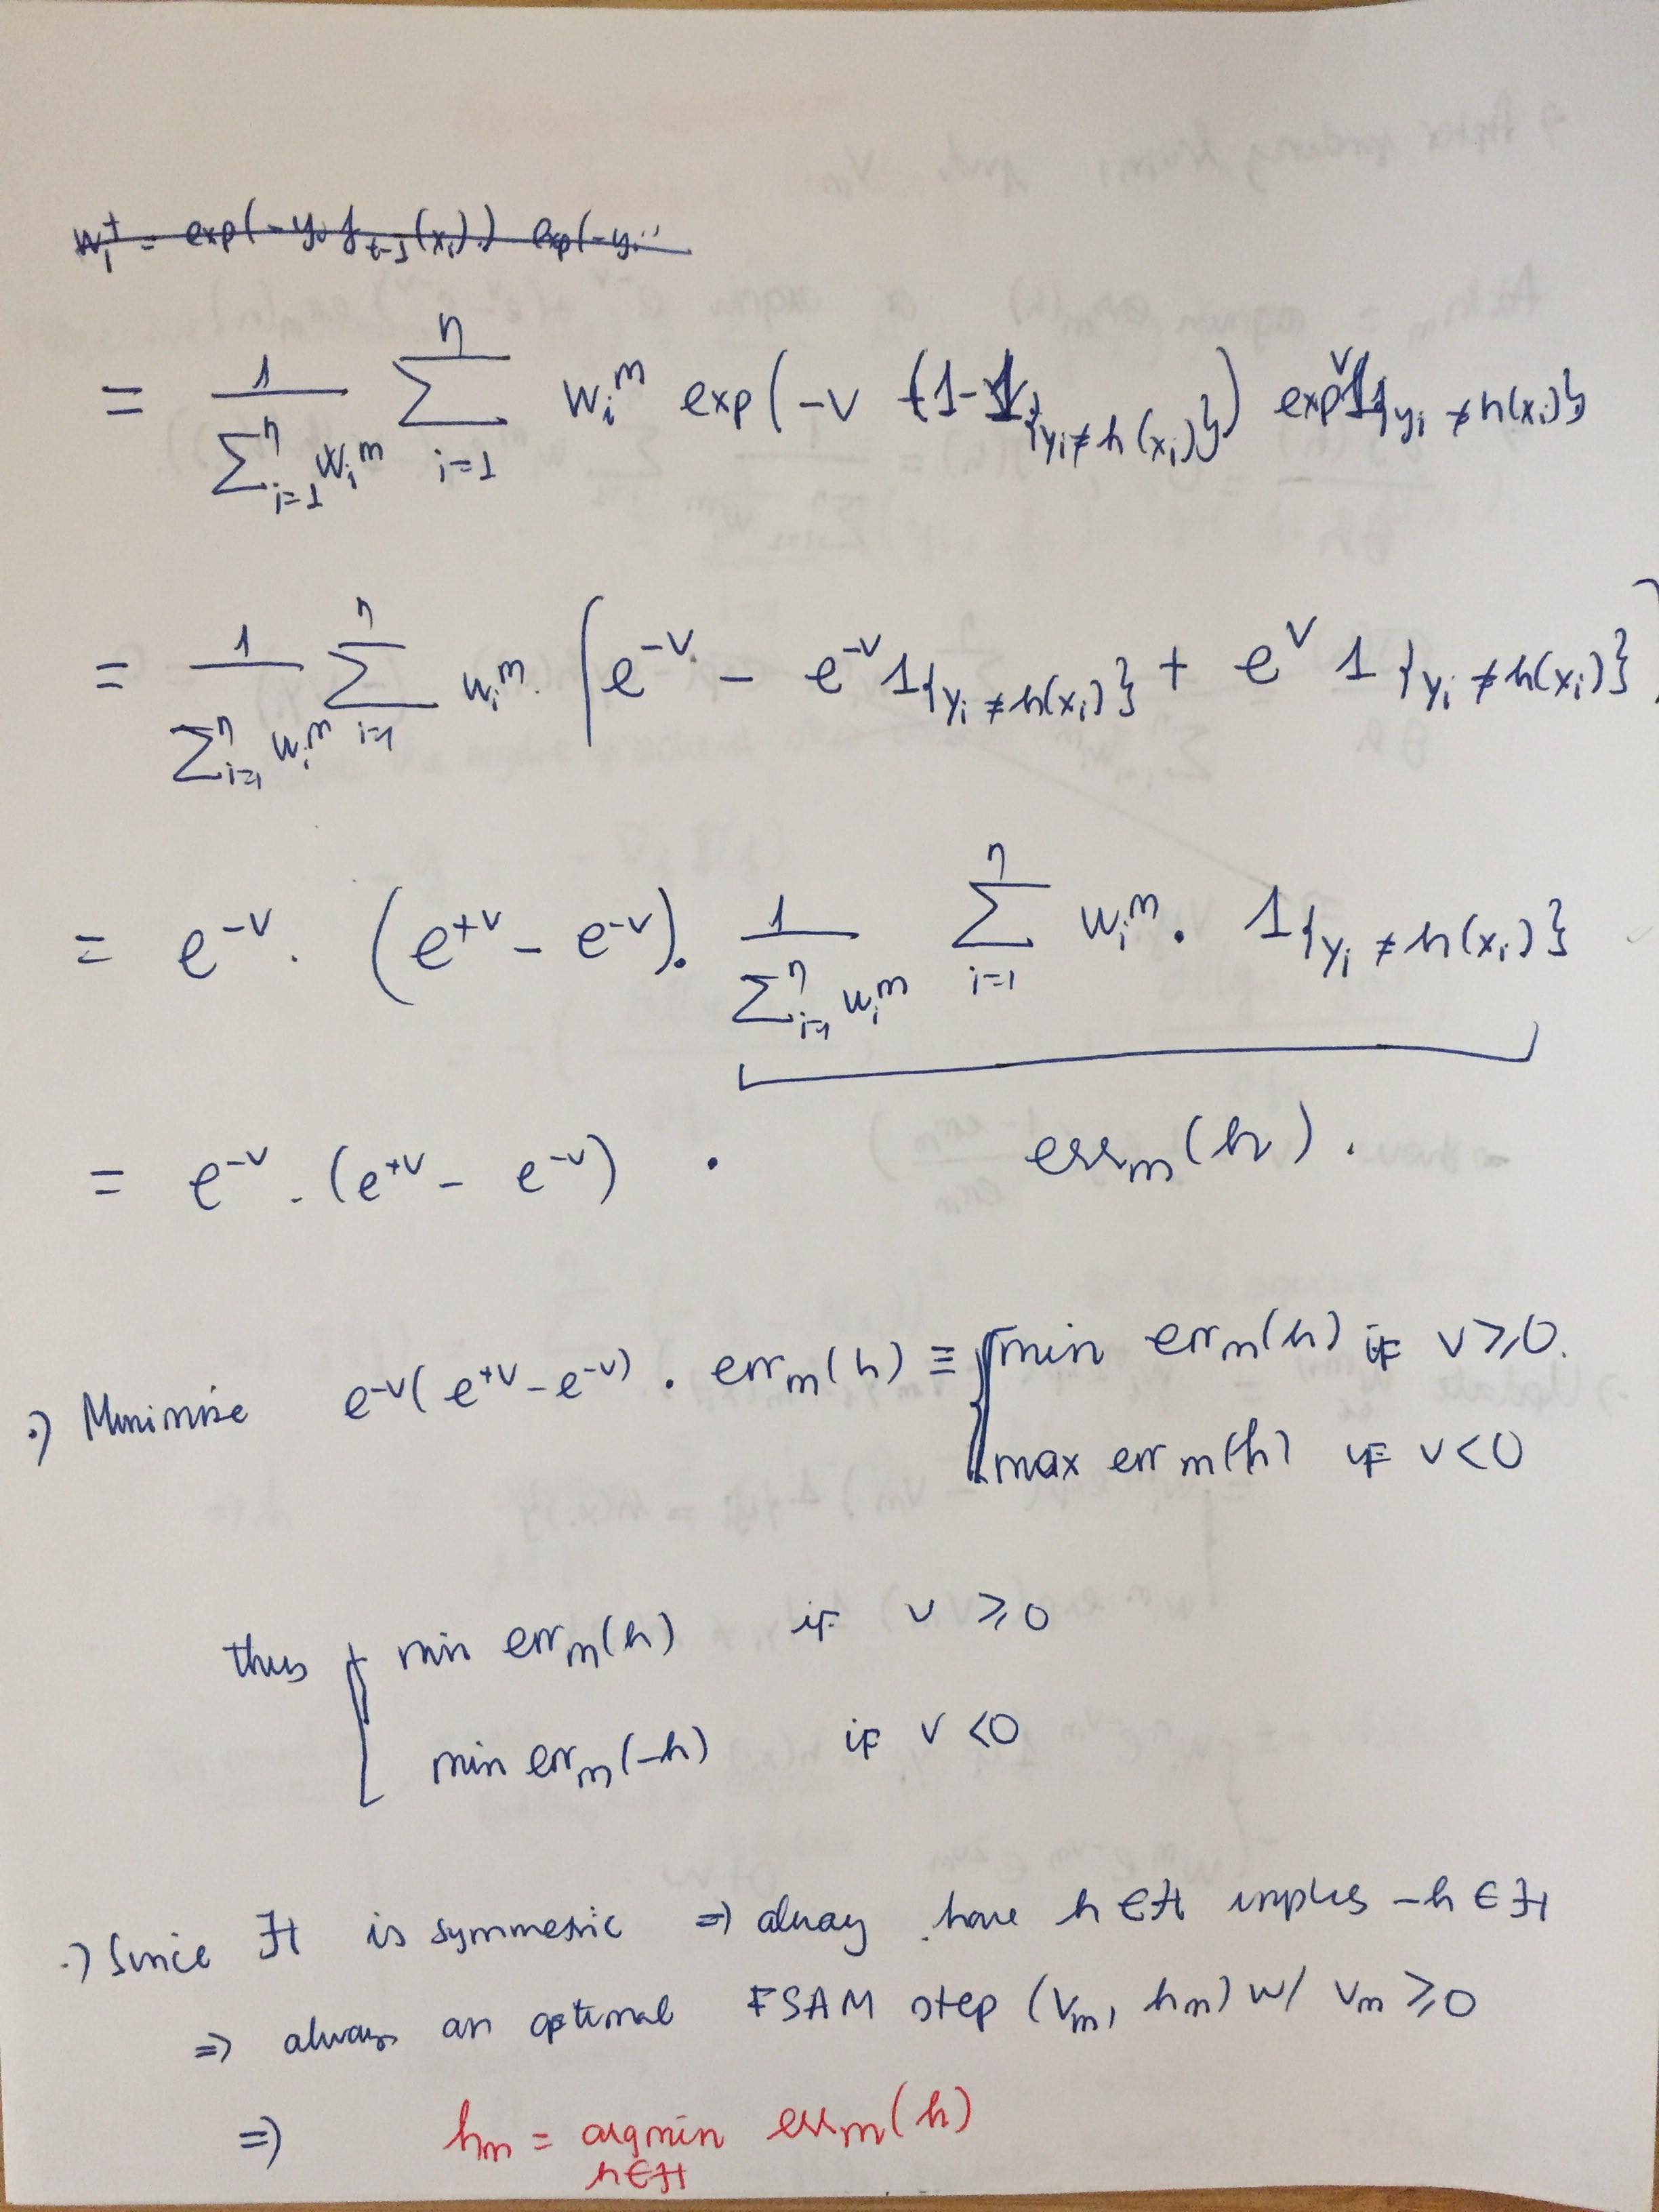 w_i^t = exp(-y_i f_{t-1}(x_i)) exp(-y_i
= \frac{1}{\sum_{i=1}^n w_i^m} \sum_{i=1}^n w_i^m exp(-v (1-1_{\{y_i ≠ h(x_i)\}}) exp^v 1_{\{y_i ≠ h(x_i)\}}
= \frac{1}{\sum_{i=1}^n w_i^m} \sum_{i=1}^n w_i^m . [e^{-v} - e^{-v} 1_{\{y_i ≠ h(x_i)\}} + e^v 1_{\{y_i ≠ h(x_i)\}}]
= e^{-v} . (e^{+v} - e^{-v}) . \frac{1}{\sum_{i=1}^n w_i^m} \sum_{i=1}^n w_i^m . 1_{\{y_i ≠ h(x_i)\}}
= e^{-v} . (e^{+v} - e^{-v}) . err_m(h) .
.) Minimize e^{-v}(e^{+v} - e^{-v}) . err_m(h) ≡ { min err_m(h) if v ≥ 0.
max err_m(h) if v < 0
thus { min err_m(h) if v ≥ 0
min err_m(-h) if v < 0
.) Since H is symmetric => alway have h ∈ H implies -h ∈ H
=> always an optimal FSAM step (v_m, h_m) w/ v_m ≥ 0
=> h_m = argmin err_m(h)
h ∈ H